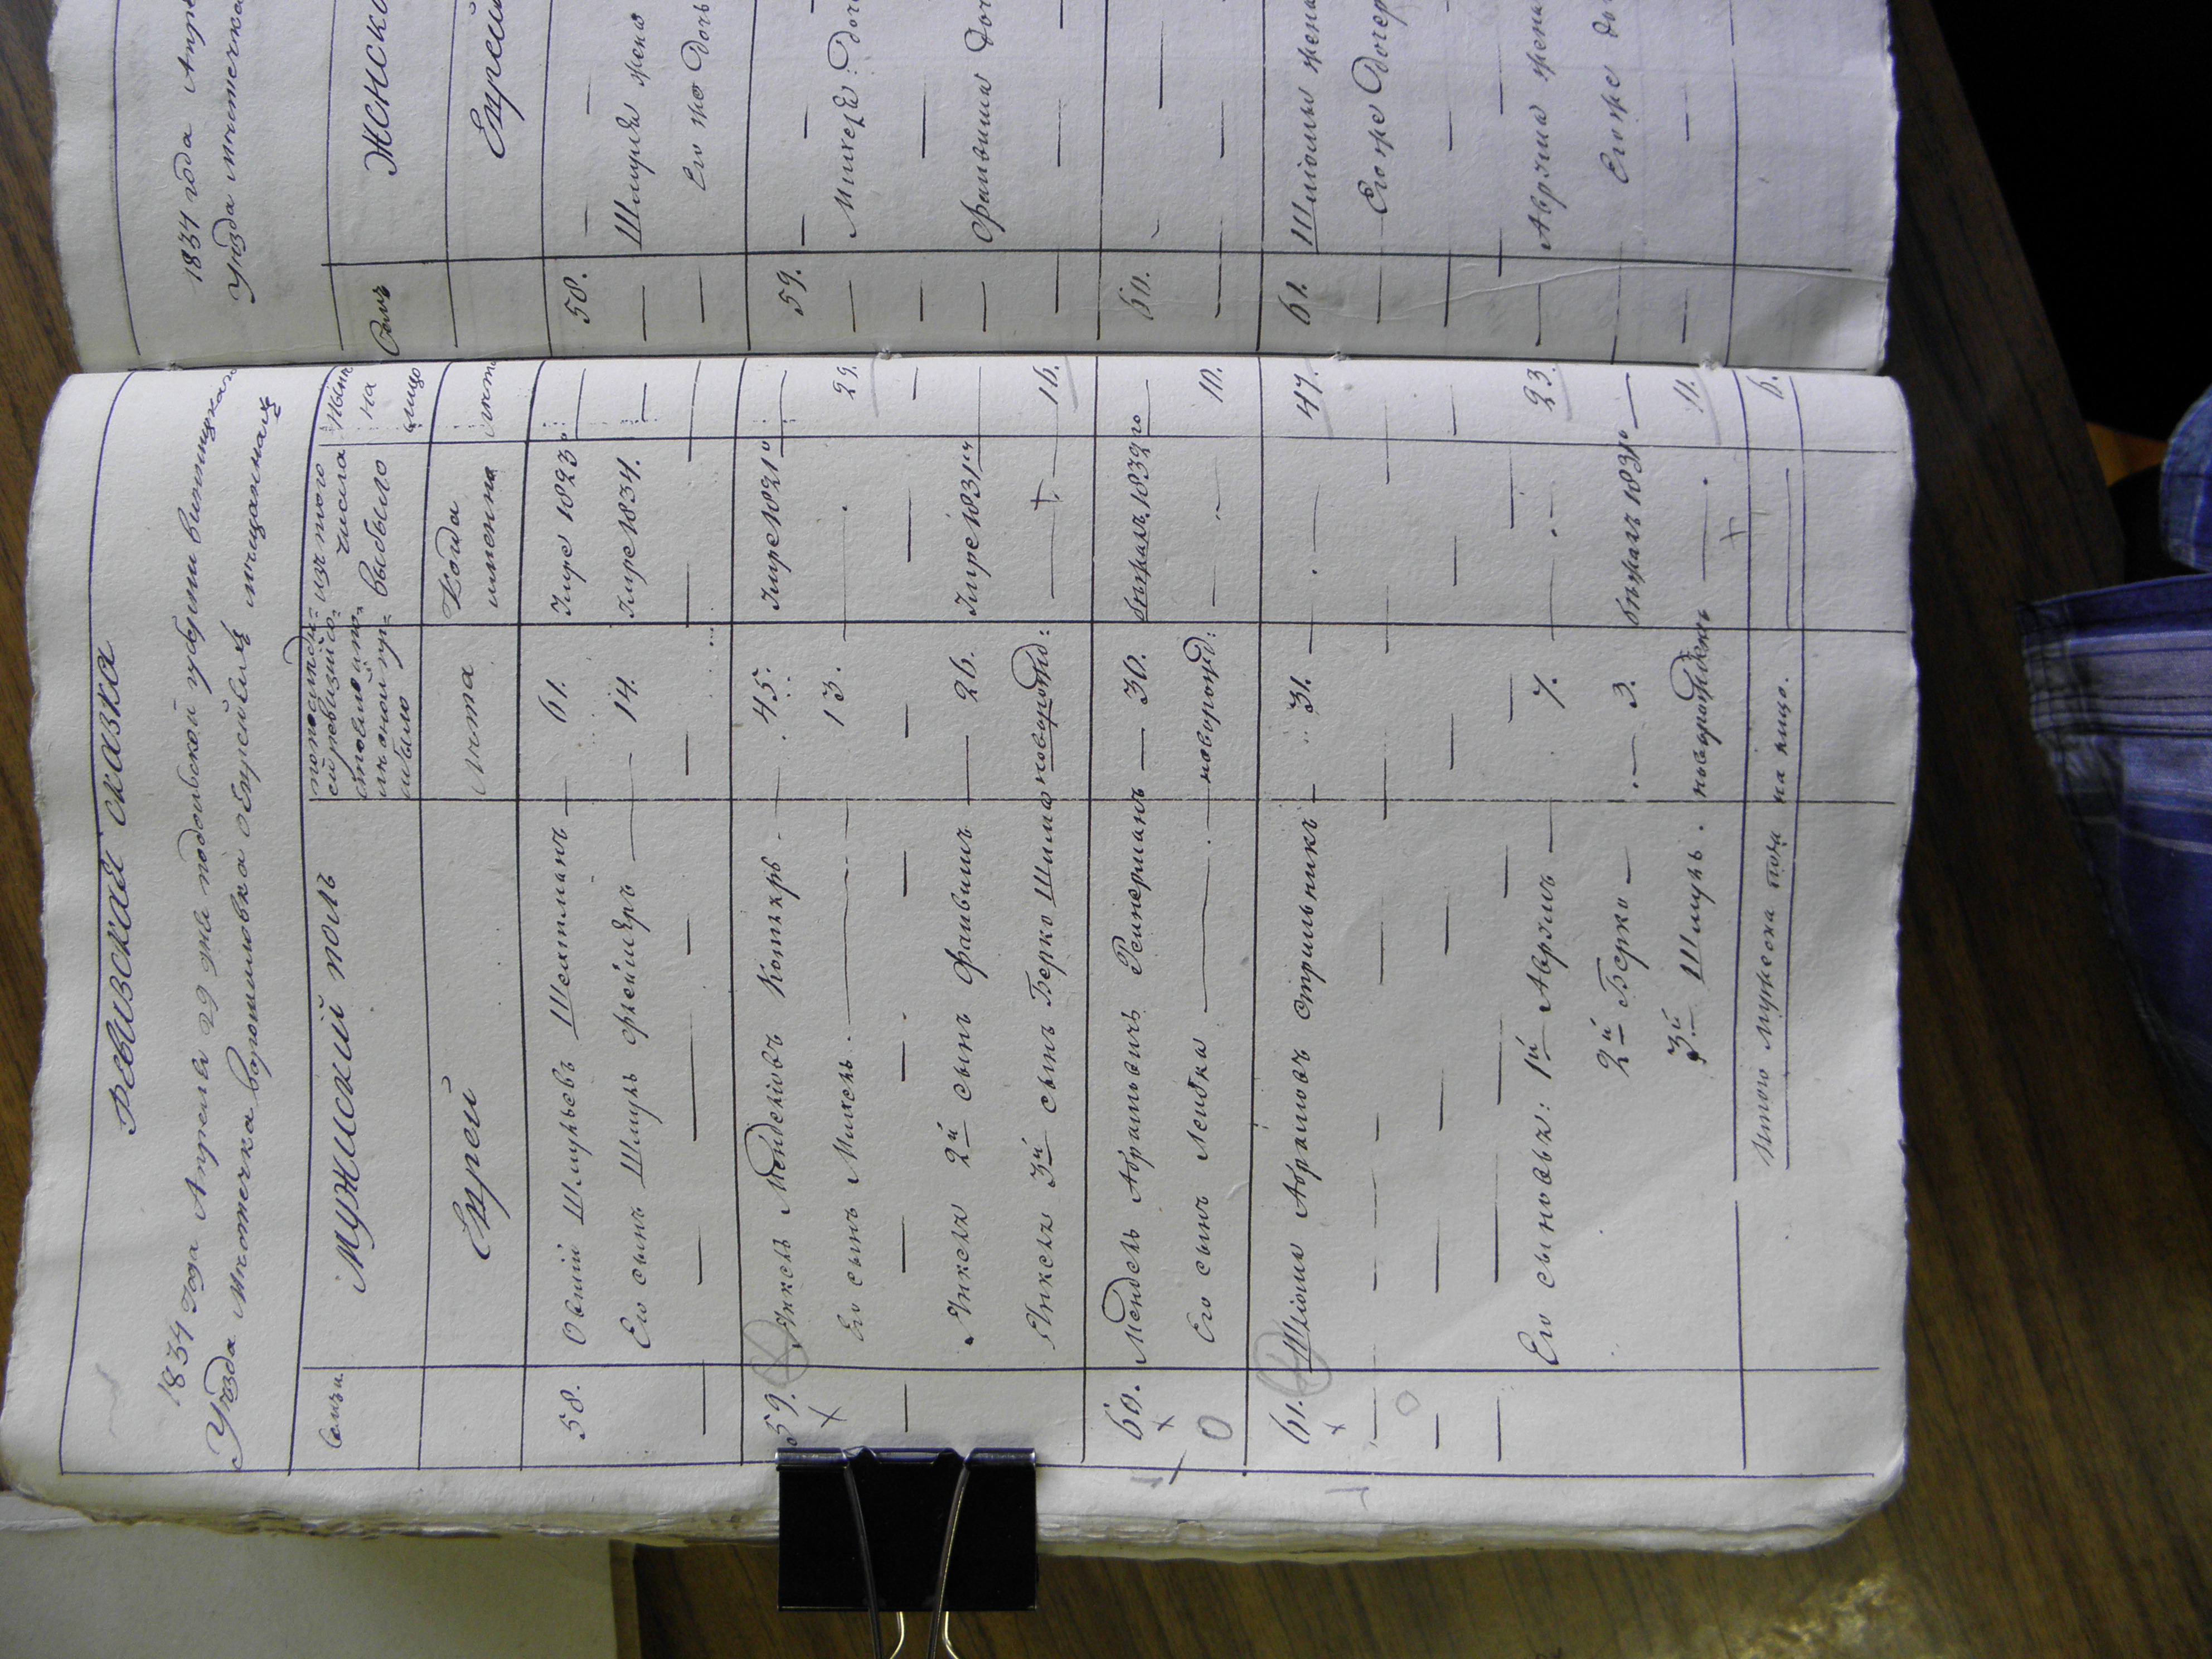 Ревизская сказка
1834 года Апреля 29 дня подольской губернии винницкаго
Уѣзда Местечка Ворошиловка о Евреяхъ мещанахъ
Семьи
Мужиский полъ
по последней ревизіи состояло и после оной прибыло
изъ того числа выбыло
Нынѣ на лицо
Евреи
Лѣта
Когда именно
лѣта
58. Овшій Шмулевъ Шехтманъ — 61. Умре 1823
Его сынъ Шмуль 14. Умре 1834.
59. Менделіовъ 45. Умре 1821
Его сынъ Михель 13. 29.
2й сынъ Фаивишъ — 26. Умре 1831го
3й сынъ Берко Шлима новорожд: — 16.
60. Мендель Абрамовичъ — 30. бежалъ 1832го
Его сынъ Лейбка — новорожд: 10.
61. Шлiома Абрамовъ Стрильникъ — 31. — 47.
Его сыновья: 1й Аврумъ — 7. — 23.
2й Берко — 3. бежалъ 1831го —
3й Шмуль. новорожденъ — 11.
Итого Мужеска пола на лицо. 6.
1834 года Апре
Уѣзда местечка
Семьи
Женско
Евреи
58. —
— Шмуля жена
— Его же дочь
59. —
— Михеля: доч
—
— Фаивиша доч
—
60. —
—
61. Шліомы жена
— Его же Дочер
—
— Аврума жена
Его же до
—